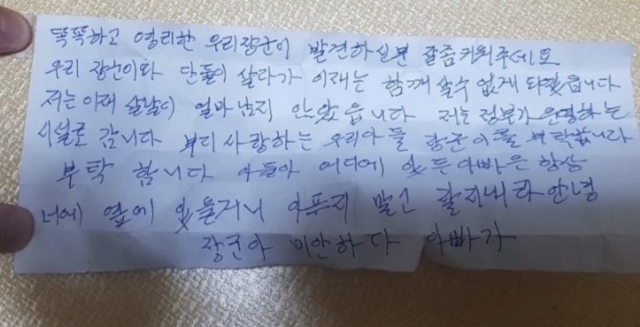 똑똑하고 영리한 우리장군이 발견하신분 잘좀키워주세요
우리 장군이와 단둘이 살다가 이재는 함께 살수 없게 돼었읍니다
저는 이재 살날이 얼마 남지 안았읍니다 저는 정부가 운영하는
시설로 갑니다 부디 사랑하는 우리아들 장군이를 부탁합니다
부탁 합니다 아들아 어디에 있든 아빠은 항상
너에 옆에 있을거니 아프지 말고 잘지내라 안녕
장군아 미안하다 아빠가